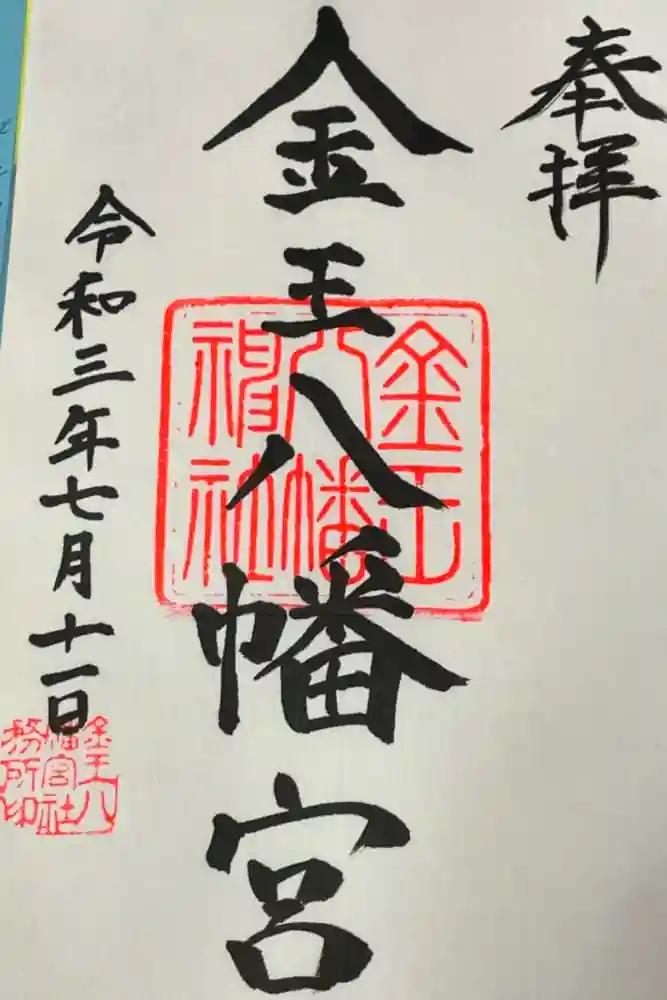 奉拝
金王八幡宮
金王八幡神社
令和三年七月十一日
金王八幡宮社務所印